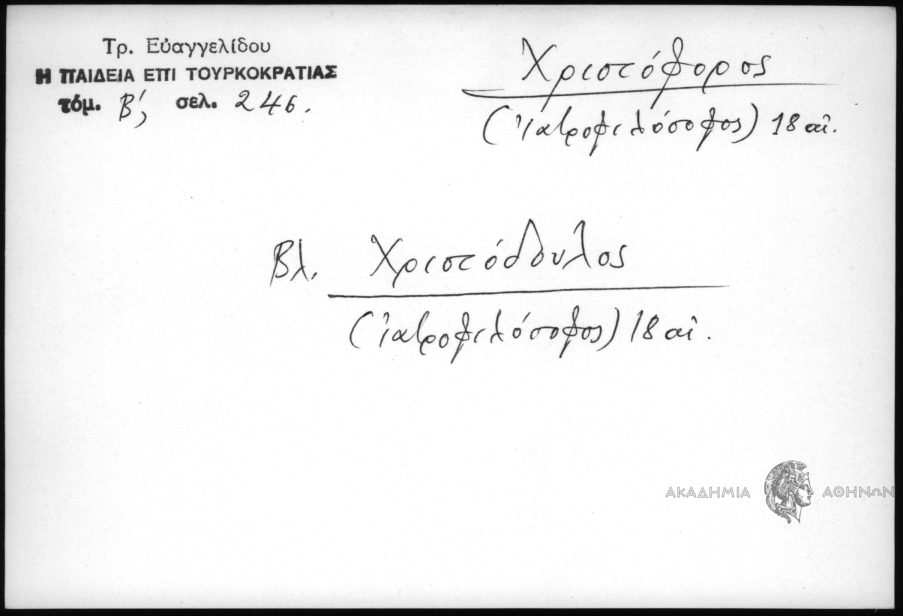 Τρ. Εὐαγγελίδου
Η ΠΑΙΔΕΙΑ ΕΠΙ ΤΟΥΡΚΟΚΡΑΤΙΑΣ
τόμ. Β´, σελ. 246.
Χριστόφορος
(ἰατροφιλόσοφος) 18 αἰ.
Βλ. Χριστόδουλος
(ἰατροφιλόσοφος) 18 αἰ.
ΑΚΑΔΗΜΙΑ ΑΘΗΝΩΝ